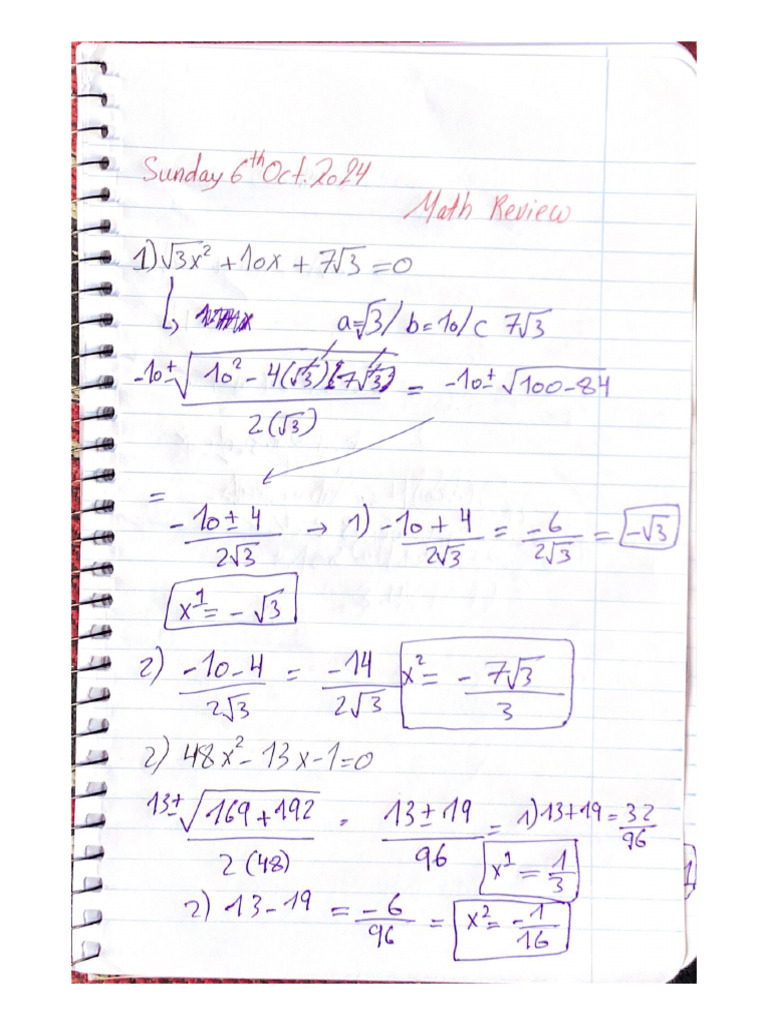 Sunday 6th Oct. 2024
Math Review
1) √3x² + 10x + 7√3 = 0
a=√3 / b=10 / c 7√3
-10 ± √(10² - 4(√3)(7√3)) / 2(√3) = -10 ± √100-84
= -10 ± 4 / 2√3 → 1) -10 + 4 / 2√3 = -6 / 2√3 = -√3
x¹ = -√3
2) -10 - 4 / 2√3 = -14 / 2√3 x² = - 7√3 / 3
2) 48x² - 13x - 1 = 0
13 ± √169 + 192 / 2(48) = 13 ± 19 / 96 = 1) 13 + 19 = 32 / 96
x¹ = 1/3
2) 13 - 19 = -6 / 96 = x² = - 1/16